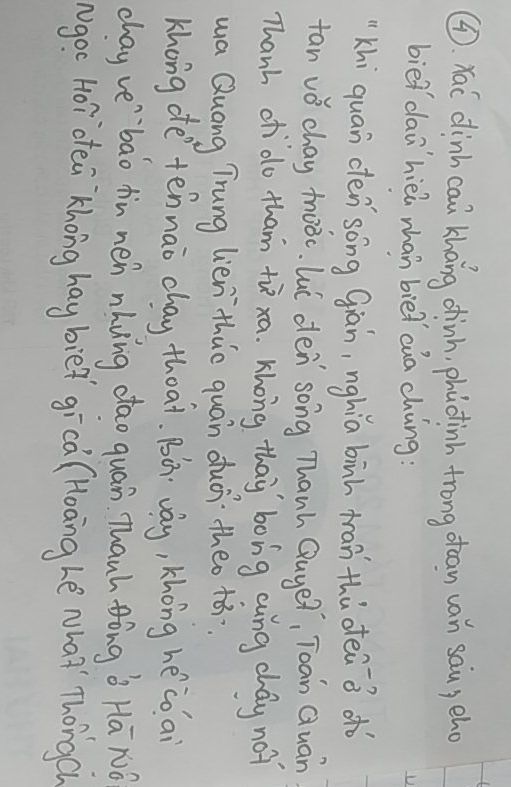 ④. Xác định câu khẳng định, phủ định trong đoạn văn sau, cho
biết dấu hiệu nhận biết của chúng:
"Khi quân đến sông Gián, nghĩa binh trấn thủ đều ở đó
tan vỡ chạy trước. Lúc đến sông Thanh Quyết, Toán Quân
Thanh đi do thám từ xa. Không thấy bóng cũng chạy nốt
ua Quang Trung liền thúc quân đuổi theo tới.
Không để tên nào chạy thoát. Bởi vậy, không hề có ai
chạy về báo tin nên những đạo quân Thanh đóng ở Hà Nồi
Ngọc Hồi đều không hay biết gì cả (Hoàng hê Nhất Thống Ch